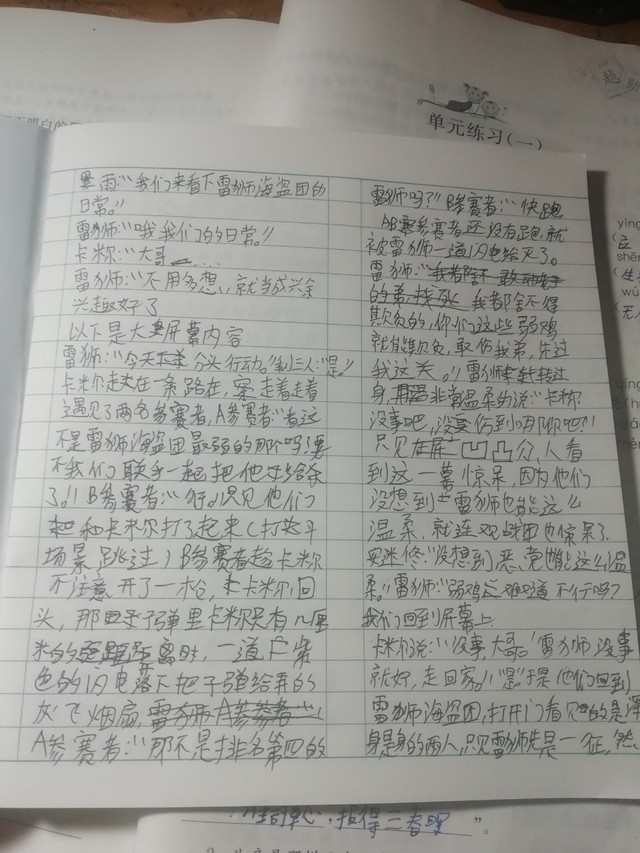 单元练习(一)
暴雨:“我们来看下雷狮海盗团的
日常。”
雷狮:“哦我们的日常。”
卡米尔:“大哥……
雷狮:“不用多想,就当成兴余
兴趣好了
以下是大屏幕内容
雷狮:“今天分头行动。”剩三人:“是。”
卡米尔走在一条路在,案走着走着
遇见了两名参赛者,A参赛者:“看这
不是雷狮海盗团最弱的那个吗?要
不我们联手一起把他给杀
了。”B参赛者:“行。”只见他们
和卡米尔打了起来(打斗
场景跳过)B参赛者趁卡米尔
不注意开了一枪,卡米尔回
头,那子弹里卡米尔只有几厘
米的距离时,一道广紫
色的闪电落下把子弹给弄的
灰飞烟扇,
A参赛者:“那不是排名第四的
雷狮吗?”B参赛者:“快跑
AB参赛者还没有跑就
被雷狮一道闪电给灭了。
雷狮:“
我都舍不得
欺负的,你们这些弱鸡
就能欺负,欺伤我弟,先过
我这关。”雷狮转过
身,用非常温柔的说:“卡米尔
没事吧,没伤到哪你吧?”
只见在屏凹凸众人看
到这一幕惊呆,因为他们
没想到雷狮也能这么
温柔,就连观战团也惊呆了
安迷修:“没想到恶党也能这么温
柔。”雷狮:“弱鸡难道不行吗?
我们回到屏幕上
卡米尔说:“没事,大哥。”雷狮没事
就好,走回家。”“是”于是他们回到
雷狮海盗团,打开门看见的是深
身是身的两人,只见雷狮先是一征,然